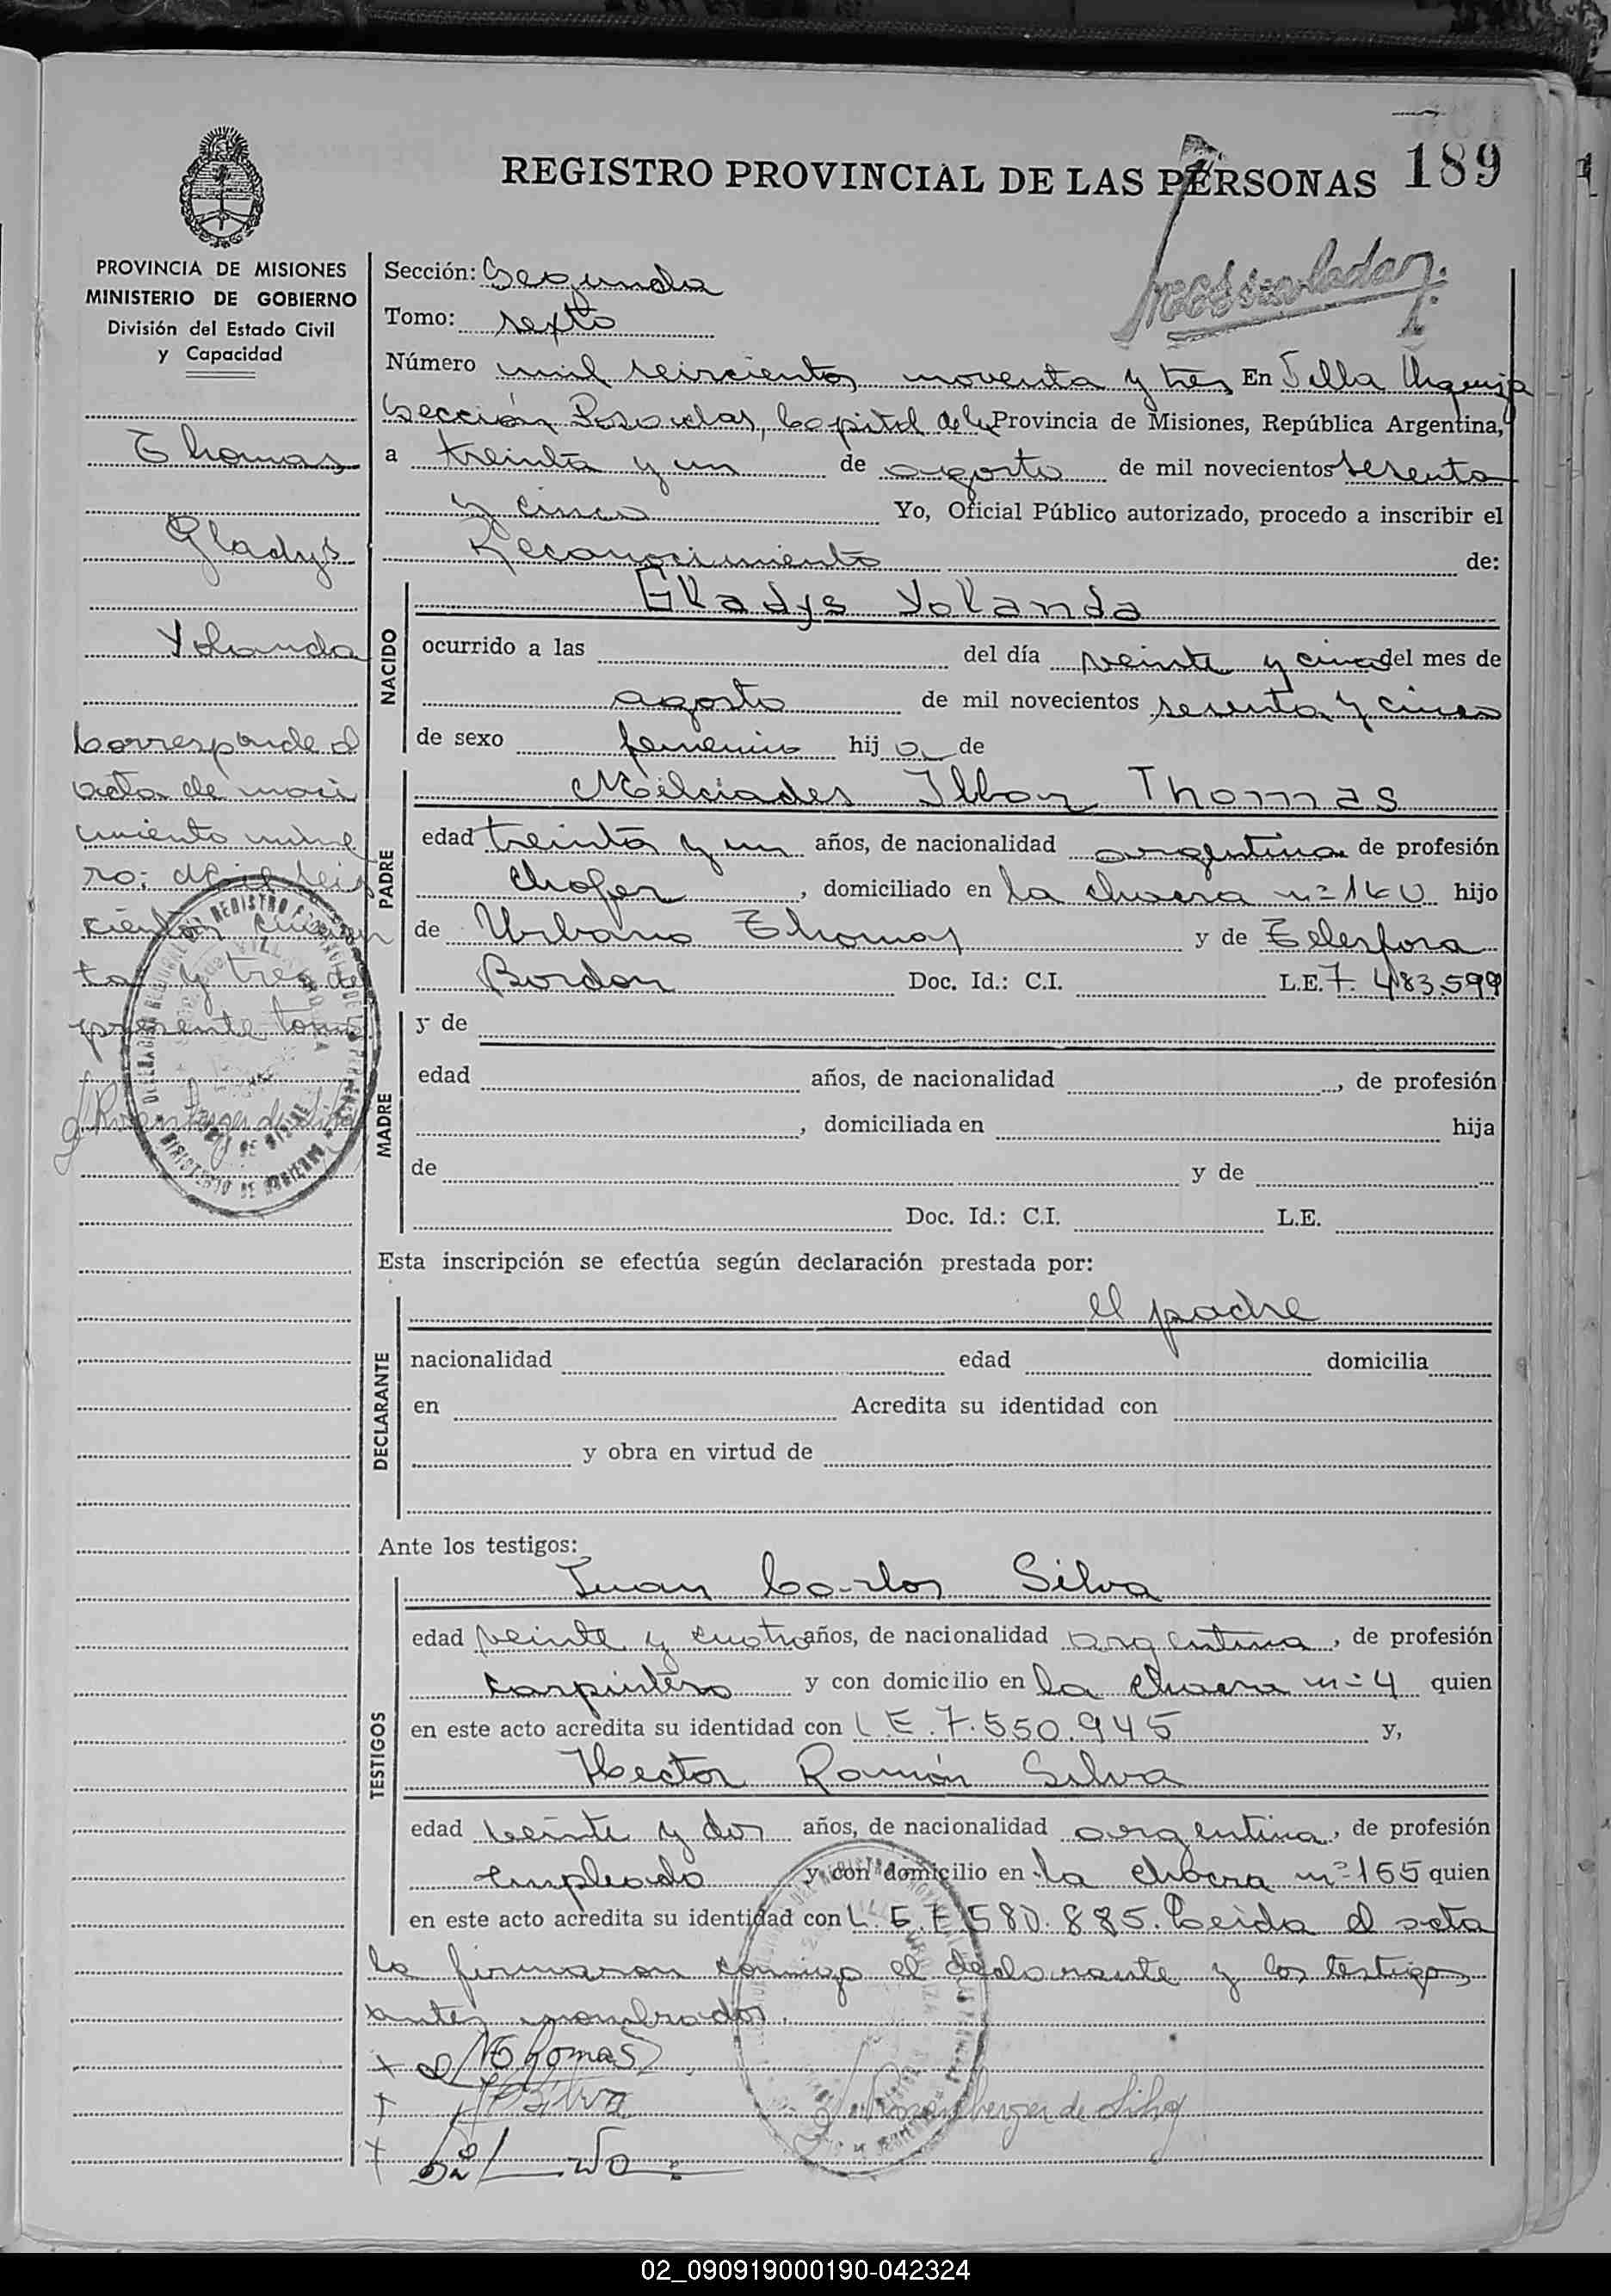 189
REGISTRO PROVINCIAL DE LAS PERSONAS
PROVINCIA DE MISIONES
MINISTERIO DE GOBIERNO
División del Estado Civil
y Capacidad
Thomas
Gladys
Yolanda
Corresponde al
acta de naci
miento núme
ro: mil seis
cientos cincuen
ta y tres del
presente tomo
Sección: Segunda
Tomo: sexto
Número mil seiscientos noventa y tres En Villa Urquiza
Sección Posadas, Capital de la Provincia de Misiones, República Argentina,
a treinta y un de agosto de mil novecientos sesenta
y cinco Yo, Oficial Público autorizado, procedo a inscribir el
Reconocimiento de:
NACIDO
Gladys Yolanda
ocurrido a las del día veinte y cinco del mes de
agosto de mil novecientos sesenta y cinco
de sexo femenino hij a de
PADRE
Milciades Thomas
edad treinta y un años, de nacionalidad argentina de profesión
Chofer, domiciliado en la chacra nº 140 hijo
de Urbano Thomas y de Telesfora
Bordon Doc. Id.: C.I. L.E. 7.483.599
MADRE
y de
edad años, de nacionalidad , de profesión
, domiciliada en hija
de y de
Doc. Id.: C.I. L.E.
Esta inscripción se efectúa según declaración prestada por:
DECLARANTE
el padre
nacionalidad edad domicilia
en Acredita su identidad con
y obra en virtud de
Ante los testigos:
TESTIGOS
Juan Carlos Silva
edad veinte y cuatro años, de nacionalidad argentina, de profesión
carpintero y con domicilio en la chacra nº 4 quien
en este acto acredita su identidad con L.E. 7.550.945 y,
Hector Ramón Silva
edad veinte y dos años, de nacionalidad argentina, de profesión
empleado y con domicilio en la chacra nº 155 quien
en este acto acredita su identidad con L.E. 7.580.885. Leida el acta
la firmaron conmigo el declarante y los testigos
antes nombrados.
Thomas
Silva
Rosemberger de Silva
02_090919000190-042324